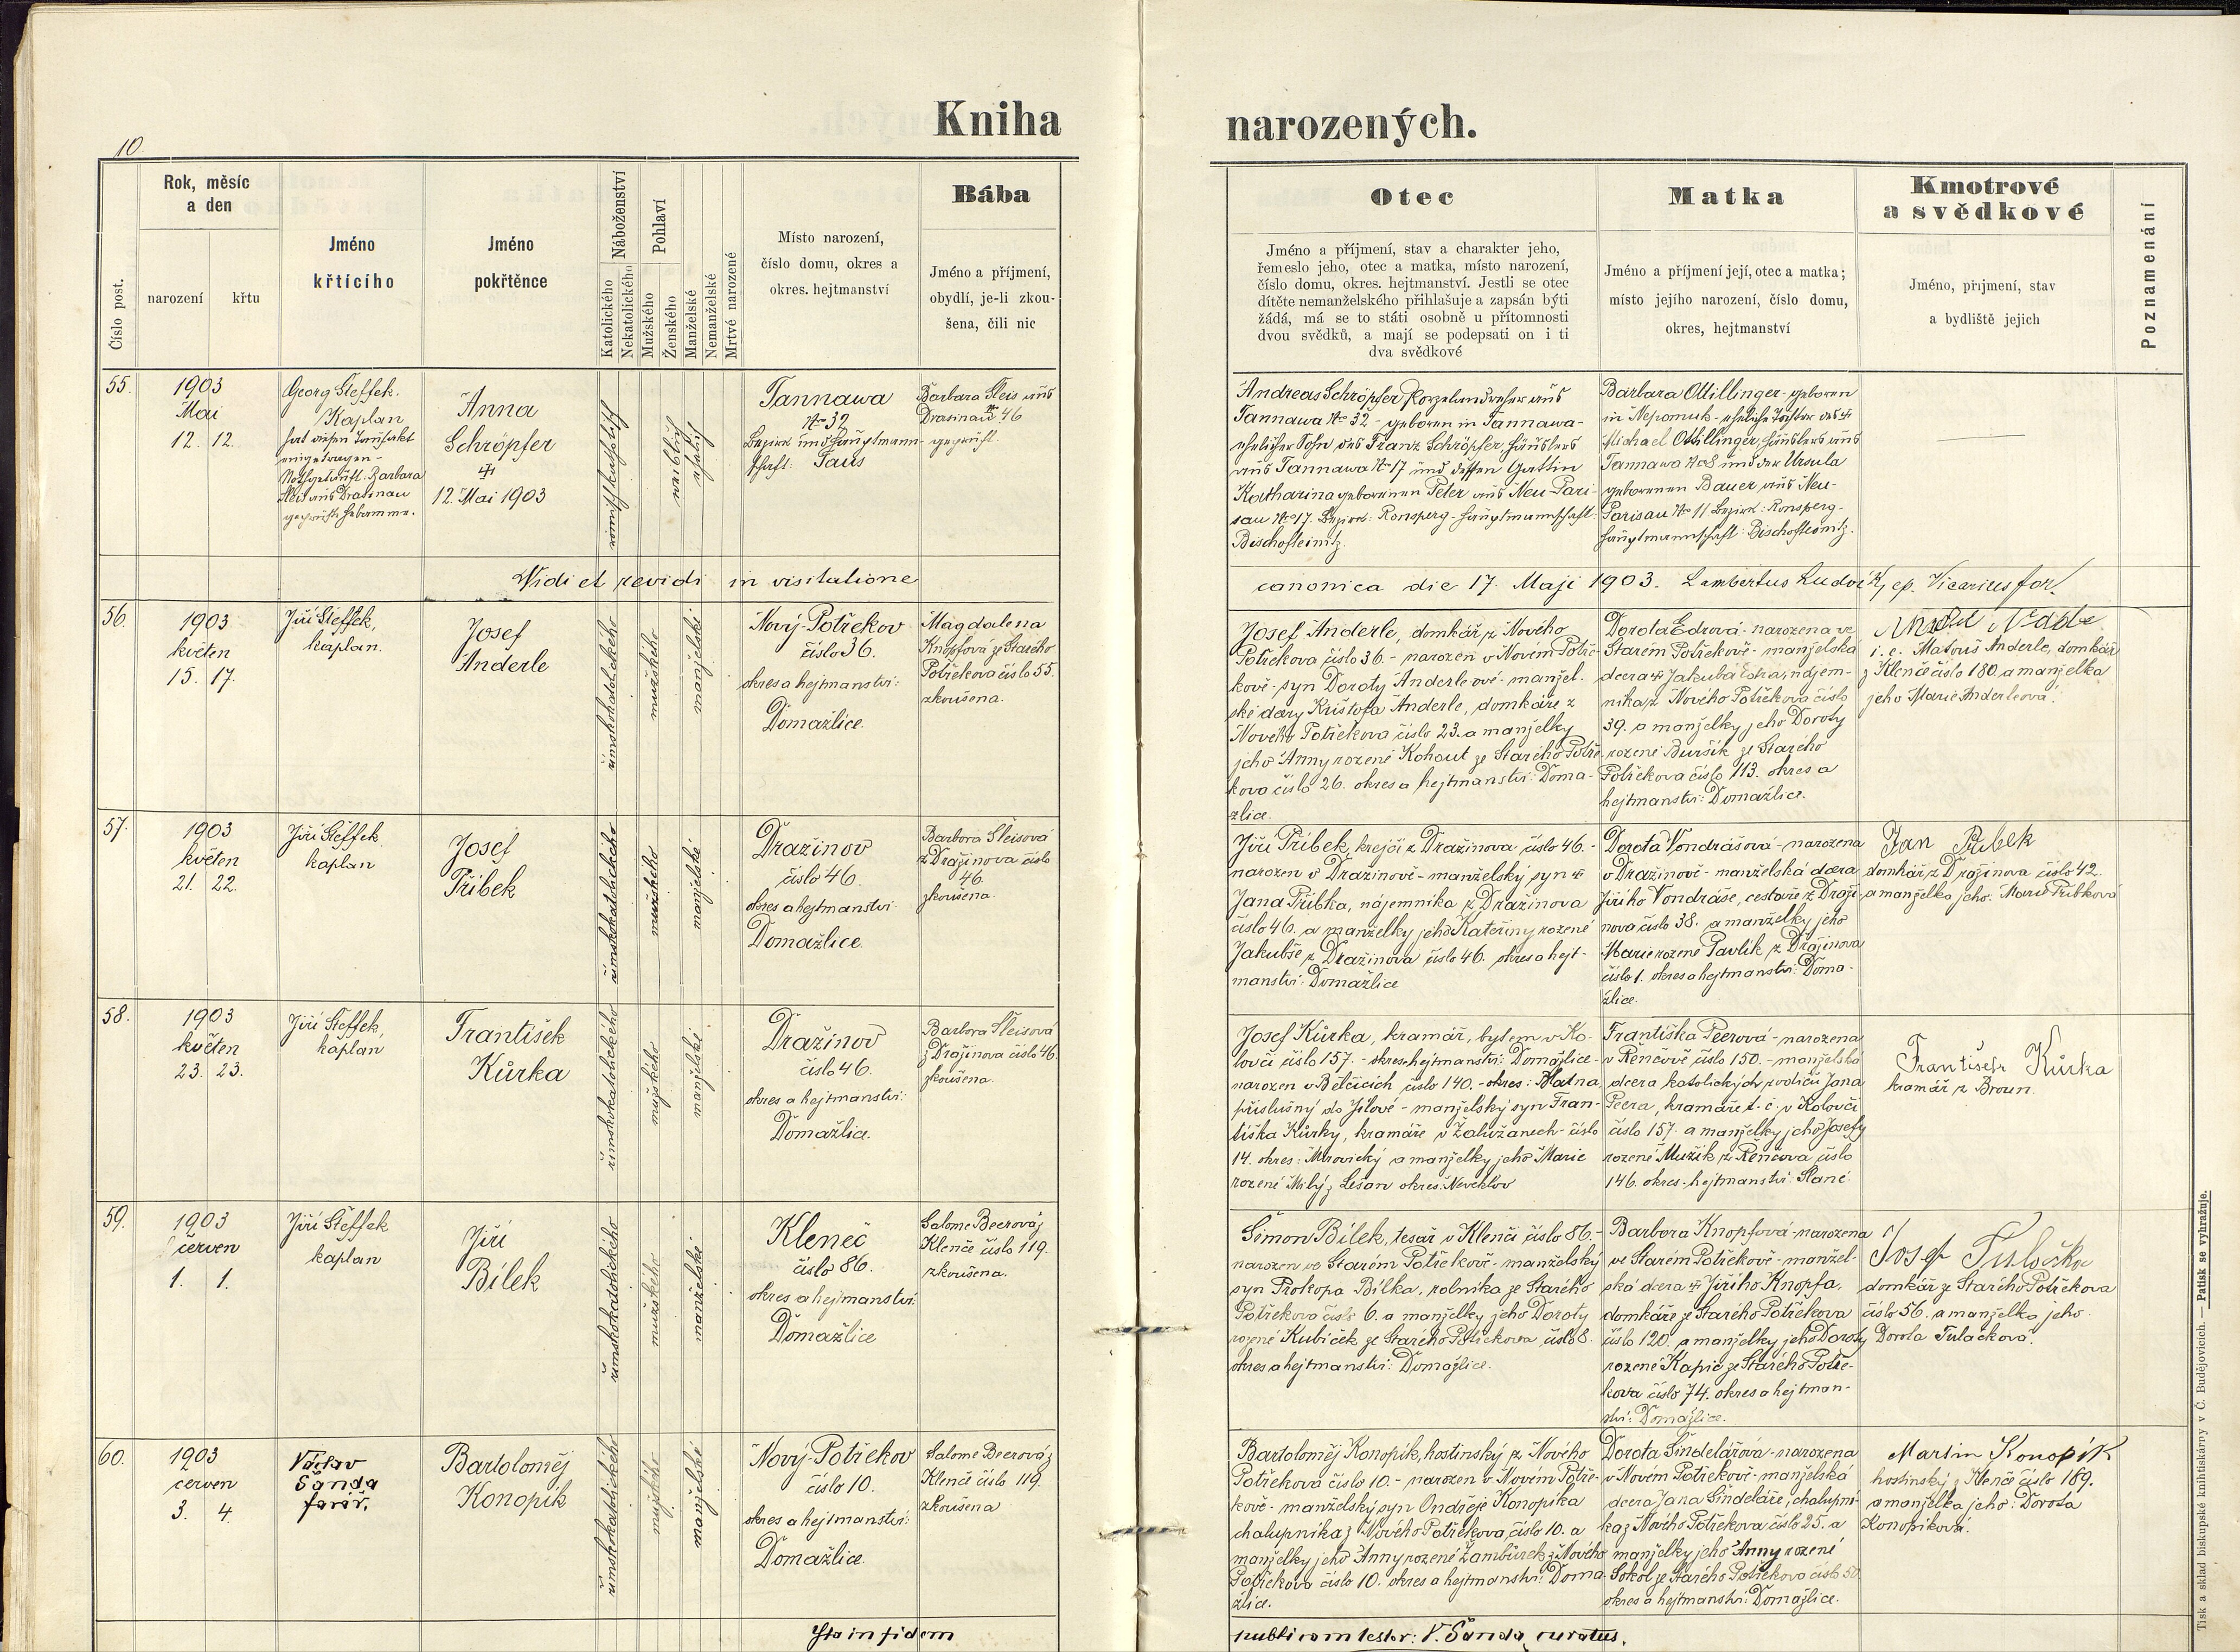 Kniha
narozených.
10.
Číslo post.
Rok, měsíc
a den
narození
křtu
Jméno
křtícího
Jméno
pokřtěnce
Náboženství
Katolického
Nekatolického
Pohlaví
Mužského
Ženského
Manželské
Nemanželské
Mrtvé narozené
Místo narození,
číslo domu, okres a
okres. hejtmanství
Bába
Jméno a příjmení,
obydlí, je-li zkou-
šena, čili nic
Otec
Jméno a příjmení, stav a charakter jeho,
řemeslo jeho, otec a matka, místo narození,
číslo domu, okres. hejtmanství. Jestli se otec
dítěte nemanželského přihlašuje a zapsán býti
žádá, má se to státi osobně u přítomnosti
dvou svědků, a mají se podepsati on i ti
dva svědkové
Matka
Jméno a příjmení její, otec a matka;
místo jejího narození, číslo domu,
okres, hejtmanství
Kmotrové
a svědkové
Jméno, příjmení, stav
a bydliště jejich
Poznamenání
55.
1903
Mai
12. 12.
Georg Steffek.
Kaplan
hat diesen Taufakt
eingetragen-
Nothgetauft. Barbara
Sleis aus Drasinau
geprüfte Hebamme.
Anna
Schröpfer
12. Mai 1903
römischkatholisch
weiblich
ehelich
Tannawa
No 32
Bezirk und Hauptmann-
schaft: Taus
Barbara Sleis aus
Drasinau No 46
geprüft.
Andreas Schröpfer Porzelandreher aus
Tannawa No 32 - geboren in Tannawa-
ehelicher Sohn des Franz Schröpfer, Häuslers
aus Tannawa No 17 und dessen Gattin
Katharina geborenen Peter aus Neu-Pari-
sau No 17. Bezirk: Ronsperg-Hauptmannschaft:
Bischofteinitz.
Barbara Ottillinger-geboren
in Nepomuk-eheliche Tochter des
Michael Ottillinger, Häuslers aus
Tannawa No 8 und der Ursula
geborenen Bauer aus Neu-
Parisau No 11 Bezirk: Ronsperg-
Hauptmannschaft: Bischofteinitz.
Vidi et revidi in visitatione
canonica die 17. Maji 1903. Lambertus Ludvík, ep. Vicarius for.
56.
1903
květen
15. 17.
Jiří Steffek,
kaplan.
Josef
Anderle
římskokatolického
mužského
manželské
Nový-Potřekov
číslo 36.
okres a hejtmanství:
Domažlice.
Magdalena
Knopfová ze Starého
Potřekova číslo 55.
zkoušena.
Josef Anderle, domkář z Nového
Potřekova číslo 36.- narozen v Novém Potře-
kově-syn Doroty Anderle-ové-manžel-
ské dcery Krištofa Anderle, domkáře z
Nového Potřekova číslo 23. a manželky
jeho Anny rozené Kohout ze Starého Potře-
kova číslo 26. okres a hejtmanství: Doma-
žlice.
Dorota Edrová-narozena ve
Starém Potřekově-manželská
dcera Jakuba Edra, nájem-
níka z Nového Potřekova číslo
39. a manželky jeho Doroty
rozené Buršík ze Starého
Potřekova číslo 113. okres a
hejtmanství: Domažlice.
i. e. Matouš Anderle, domkář
z Klenče číslo 180. a manželka
jeho Marie Anderleová.
57.
1903
květen
21. 22.
Jiří Steffek
kaplan
Josef
Přibek
římskokatolického
mužského
manželské
Dražinov
číslo 46.
okres a hejtmanství
Domažlice.
Barbora Sleisová
z Dražinova číslo
46.
zkoušena.
Jiří Přibek, krejčí z Dražinova číslo 46.-
narozen v Dražinově-manželský syn
Jana Přibka, nájemníka z Dražinova
číslo 46. a manželky jeho Kateřiny rozené
Jakubše z Dražinova číslo 46. okres a hejt-
manství: Domažlice
Dorota Vondrášová-narozena
v Dražinově-manželská dcera
Jiřího Vondráše, cestáře z Draži-
nova číslo 38. a manželky jeho
Marie rozené Pavlík z Dražinova
číslo 1. okres a hejtmanství: Doma-
žlice.
Jan Přibek
domkář z Dražinova číslo 42.
a manželka jeho: Marie Přibková
58.
1903
květen
23. 23.
Jiří Steffek,
kaplan
František
Kůrka
římskokatolického
mužského
manželské
Dražinov
číslo 46.
okres a hejtmanství:
Domažlice.
Barbora Sleisová
z Dražinova číslo 46.
zkoušena.
Josef Kůrka, kramář, bytem v Ko-
lovči číslo 157.- okres-hejtmanství: Domažlice-
narozen v Bělčicích číslo 140.-okres: Blatna,
příslušný do Jílové-manželský syn Fran-
tiška Kůrky, kramáře v Zalužanech-číslo
14. okres: Mirovický a manželky jeho Marie
rozené Milý z Lešan okres: Neveklov
Františka Peerová-narozena
v Řenčově číslo 150.-manželská
dcera katolických rodičů Jana
Peera, kramáře t. č. v Kolovči
číslo 157. a manželky jeho Josefy
rozené Mužík z Řenčova číslo
146. okres-hejtmanství: Slané.
František Kůrka
kramář z Broum.
59.
1903
červen
1. 1.
Jiří Steffek
kaplan
Jiří
Bílek
římskokatolického
mužského
manželské
Kleneč
číslo 86.
okres a hejtmanství:
Domažlice
Salome Beerová z
Klenče číslo 119.
zkoušena.
Šimon Bílek, tesař v Klenči číslo 86.-
narozen ve Starém Potřekově-manželský
syn Prokopa Bílka, rolníka ze Starého
Potřekova číslo 6. a manželky jeho Doroty
rozené Kubíček ze Starého Potřekova číslo 8.
okres a hejtmanství: Domažlice.
Barbora Knopfová-narozena
ve Starém Potřekově-manžel-
ská dcera Jiřího Knopfa,
domkáře ze Starého Potřekova
číslo 120. a manželky jeho Doroty
rozené Kapic ze Starého Potře-
kova číslo 74. okres a hejtman-
ství: Domažlice.
Josef Tulačka
domkář ze Starého Potřekova
číslo 56. a manželka jeho
Dorota Tulačková.
60.
1903
červen
3. 4.
Václav
Šanda
farář.
Bartoloměj
Konopík
římskokatolického
mužského
manželské
Nový-Potřekov
číslo 10.
okres a hejtmanství:
Domažlice.
Salome Beerová z
Klenč číslo 119.
zkoušena
Bartoloměj Konopík, hostinský z Nového
Potřekova číslo 10.- narozen v Novém Potře-
kově-manželský syn Ondřeje Konopíka
chalupníka z Nového Potřekova, číslo 10. a
manželky jeho Anny rozené Žambůrek z Nového
Potřekova číslo 10. okres a hejtmanství: Doma-
žlice.
Dorota Šindelářová-narozena
v Novém Potřekově-manželská
dcera Jana Šindeláře, chalupní-
ka z Nového Potřekova číslo 25. a
manželky jeho Anny rozené
Sokol ze Starého Potřekova číslo 50
okres a hejtmanství: Domažlice.
Martin Konopík
hostinský z Klenče číslo 169.
a manželka jeho: Dorota
Konopíková.
Ita in fidem
publicam testor: V. Šanda, curatus.
Tisk a sklad biskupské knihtiskárny v Č. Budějovicích. — Patisk se vyhražuje.